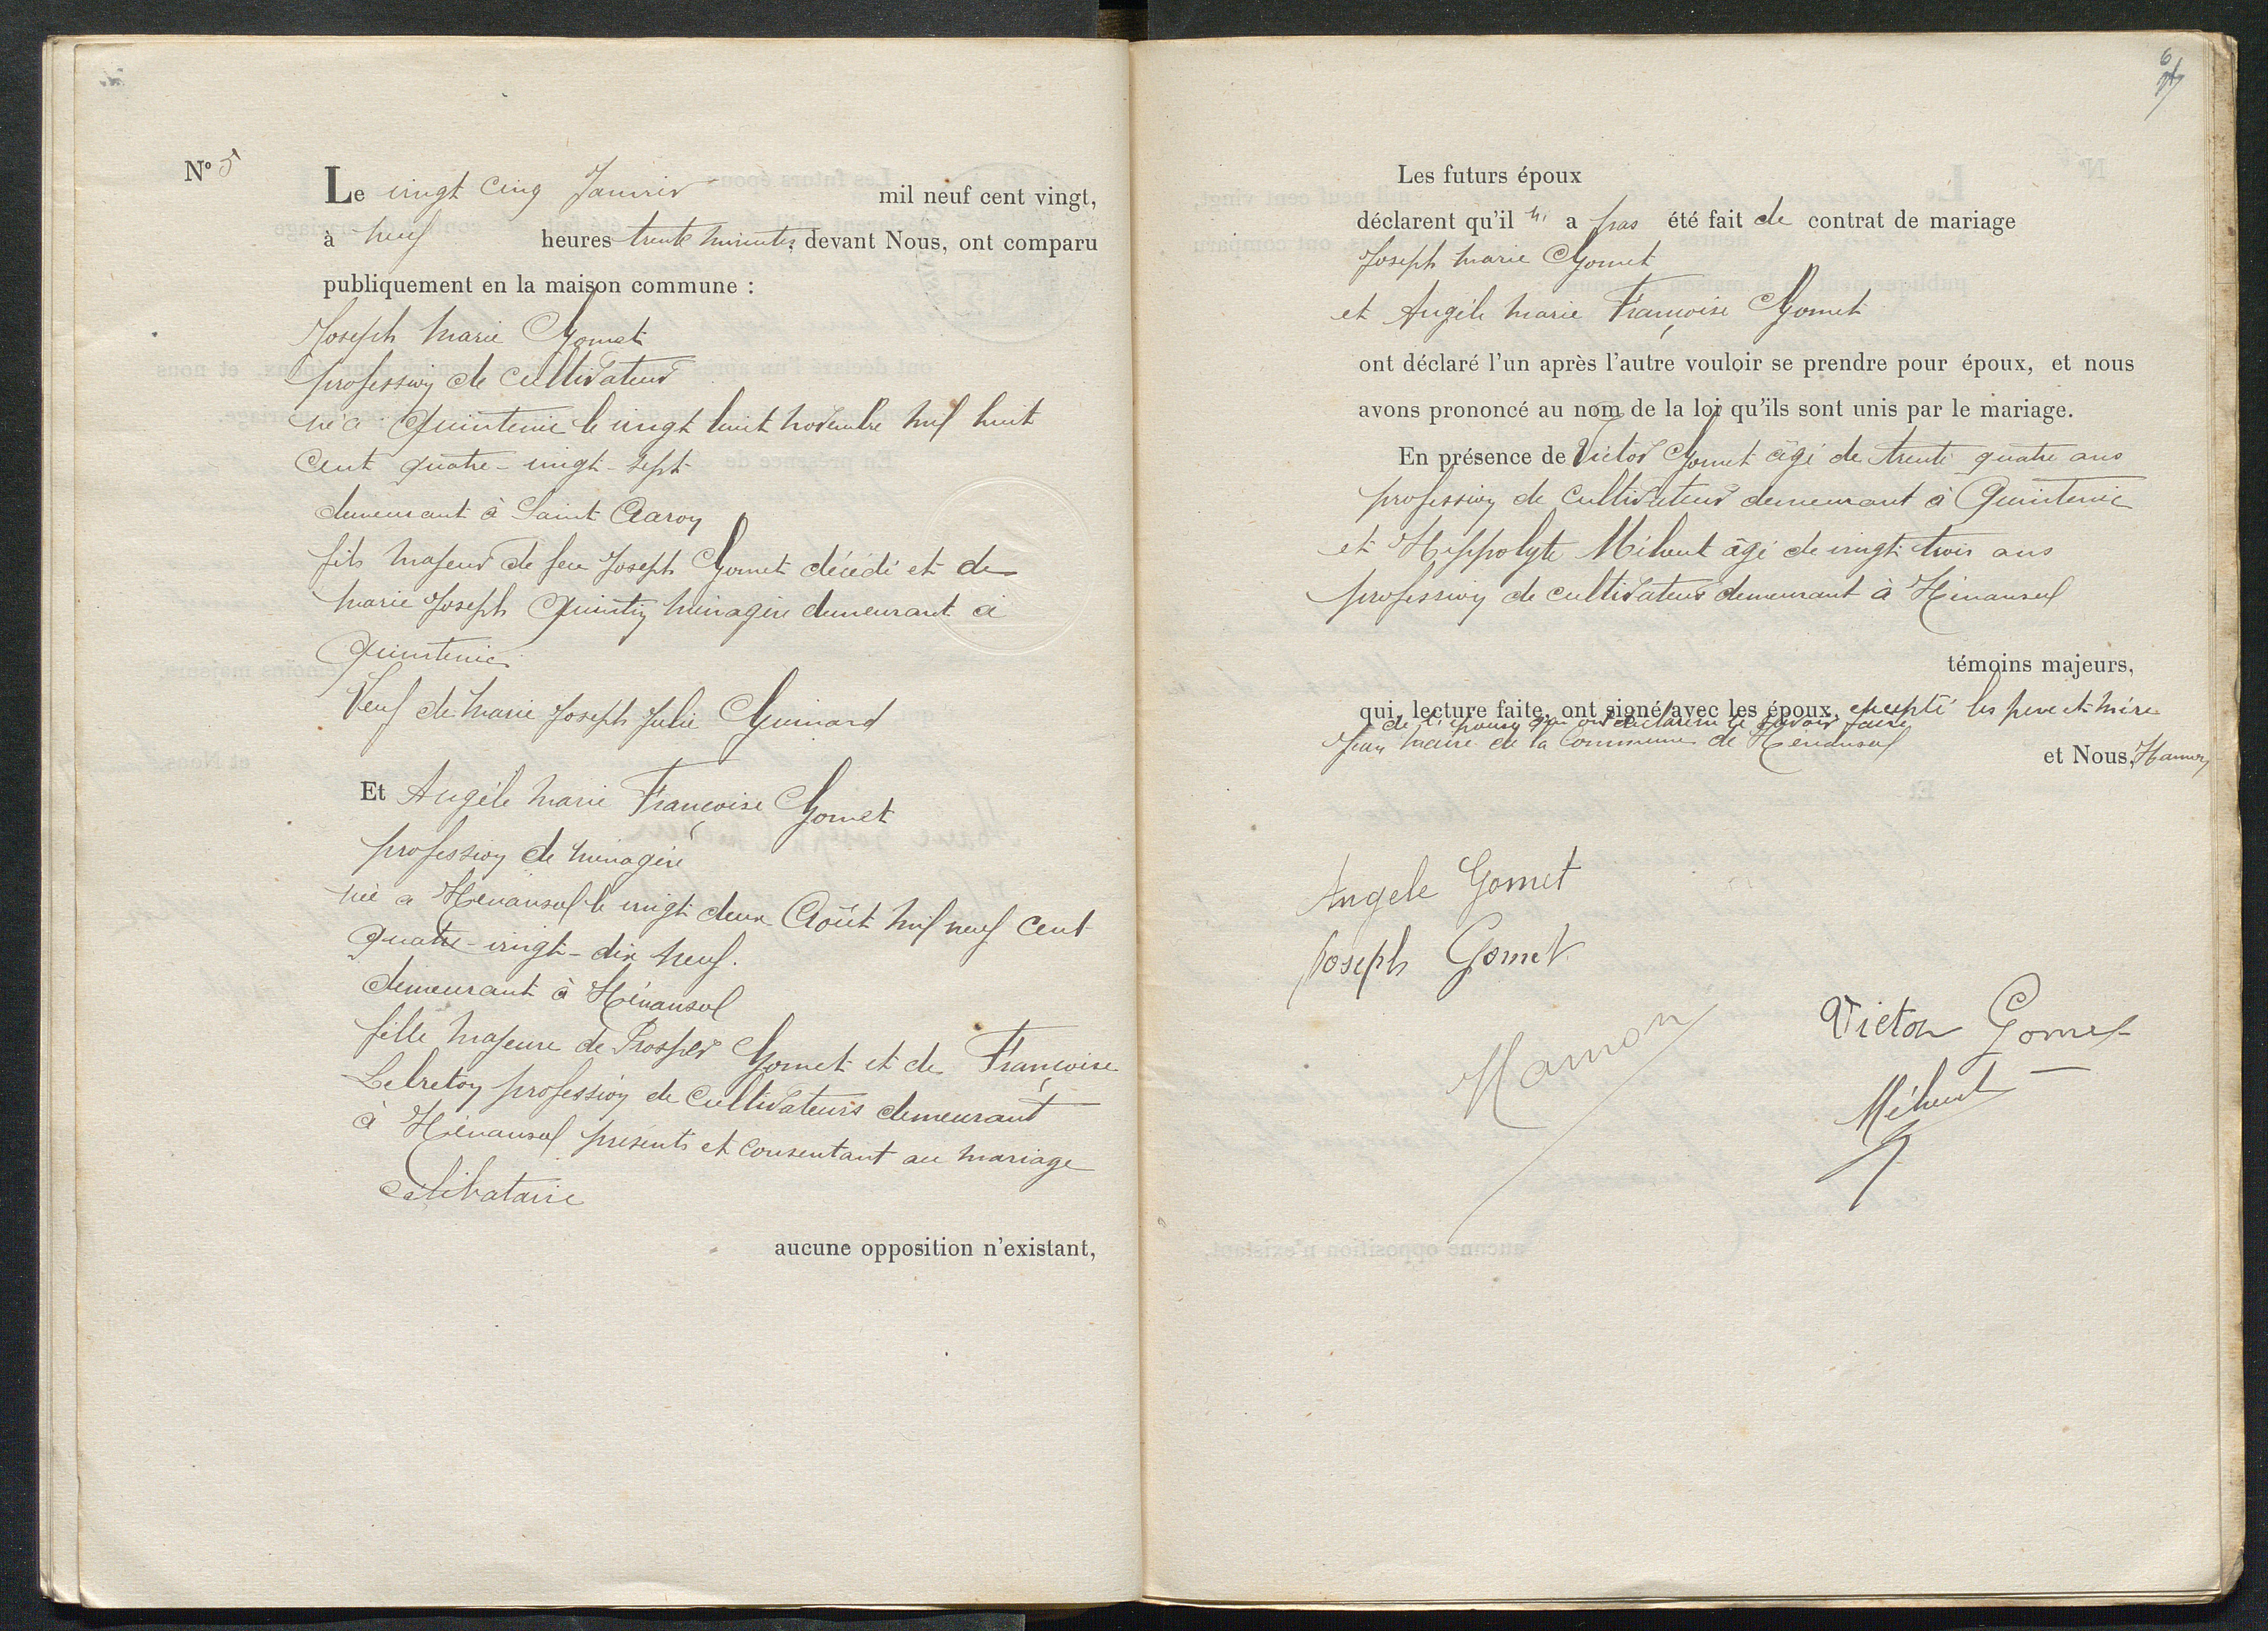 N° 5
Le vingt cinq Janvier mil neuf cent vingt,
à neuf heures trente minutes, devant Nous, ont comparu
publiquement en la maison commune :
Joseph Marie Gomet
profession de cultivateur
né à Quintenic le vingt huit novembre mil huit
cent quatre-vingt-sept
demeurant à Saint Aaron
fils majeur de feu Joseph Gomet décédé et de
Marie Joseph Quintin ménagère demeurant à
Quintenic
Veuf de Marie Joseph Julie Guinard
Et Angèle Marie Françoise Gomet
profession de ménagère
née à Hénansal le vingt deux Août mil neuf cent
quatre-vingt-dix neuf.
demeurant à Hénansal
fille majeure de Prosper Gomet et de Françoise
Lebreton profession de cultivateurs demeurant
à Hénansal présents et consentant au mariage
célibataire
aucune opposition n'existant,
6
Les futurs époux
déclarent qu'il n' a pas été fait de contrat de mariage
Joseph Marie Gomet
et Angèle Marie Françoise Gomet
ont déclaré l'un après l'autre vouloir se prendre pour époux, et nous
avons prononcé au nom de la loi qu'ils sont unis par le mariage.
En présence de Victor Gomet âgé de trente quatre ans
profession de cultivateur demeurant à Quintenic
et Hippolyte Méheut âgé de vingt trois ans
profession de cultivateur demeurant à Hénansal
témoins majeurs,
qui, lecture faite, ont signé avec les époux, excepté les père et mère
de l'épouse qui ont déclaré ne le savoir faire
et Nous, Hamon
Jean maire de la commune de Hénansal
Angele Gomet
Joseph Gomet
Hamon
Victor Gomet
Méheut